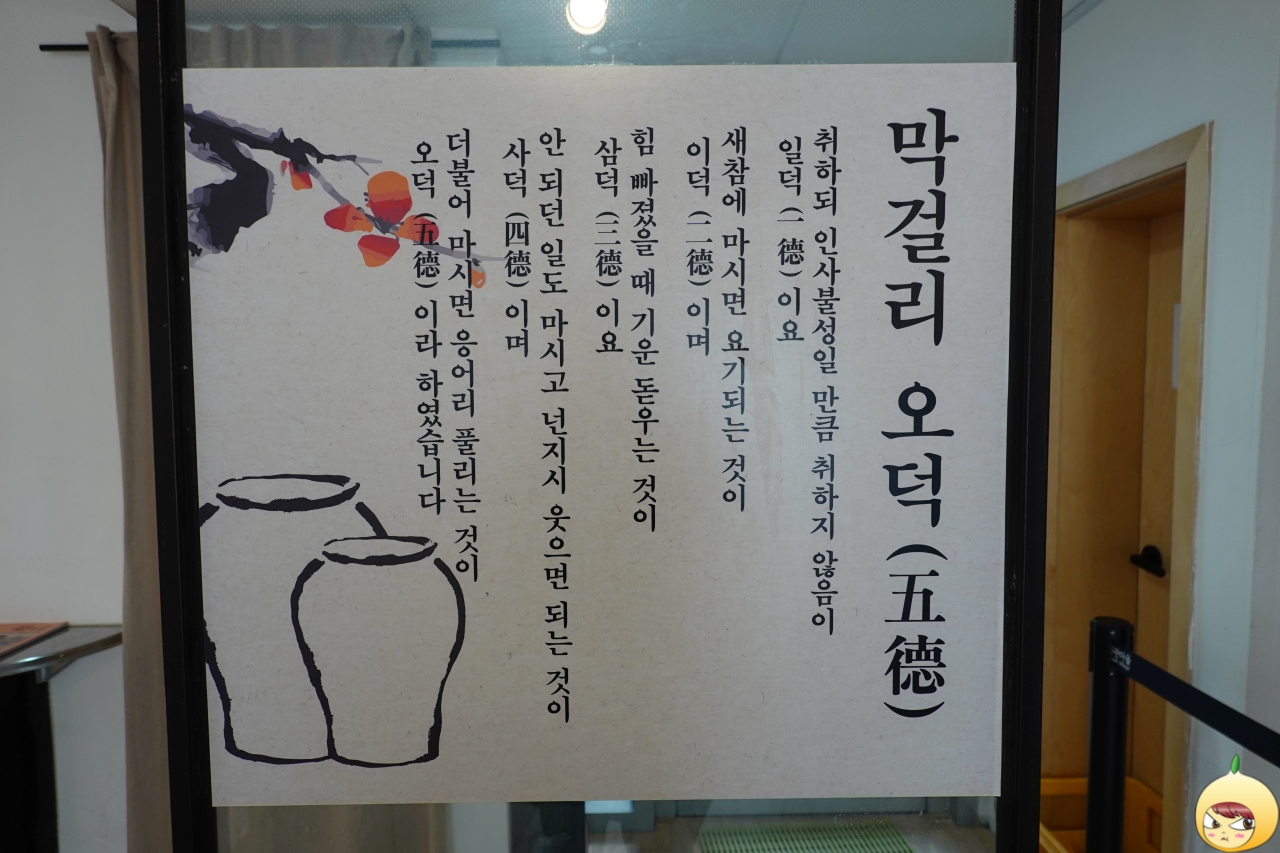 막걸리 오덕(五德)
취하되 인사불성일 만큼 취하지 않음이
일덕(一德)이요
새참에 마시면 요기되는 것이
이덕(二德)이며
힘 빠졌을 때 기운 돋우는 것이
삼덕(三德)이요
안 되던 일도 마시고 넌지시 웃으면 되는 것이
사덕(四德)이며
더불어 마시면 응어리 풀리는 것이
오덕(五德)이라 하였습니다